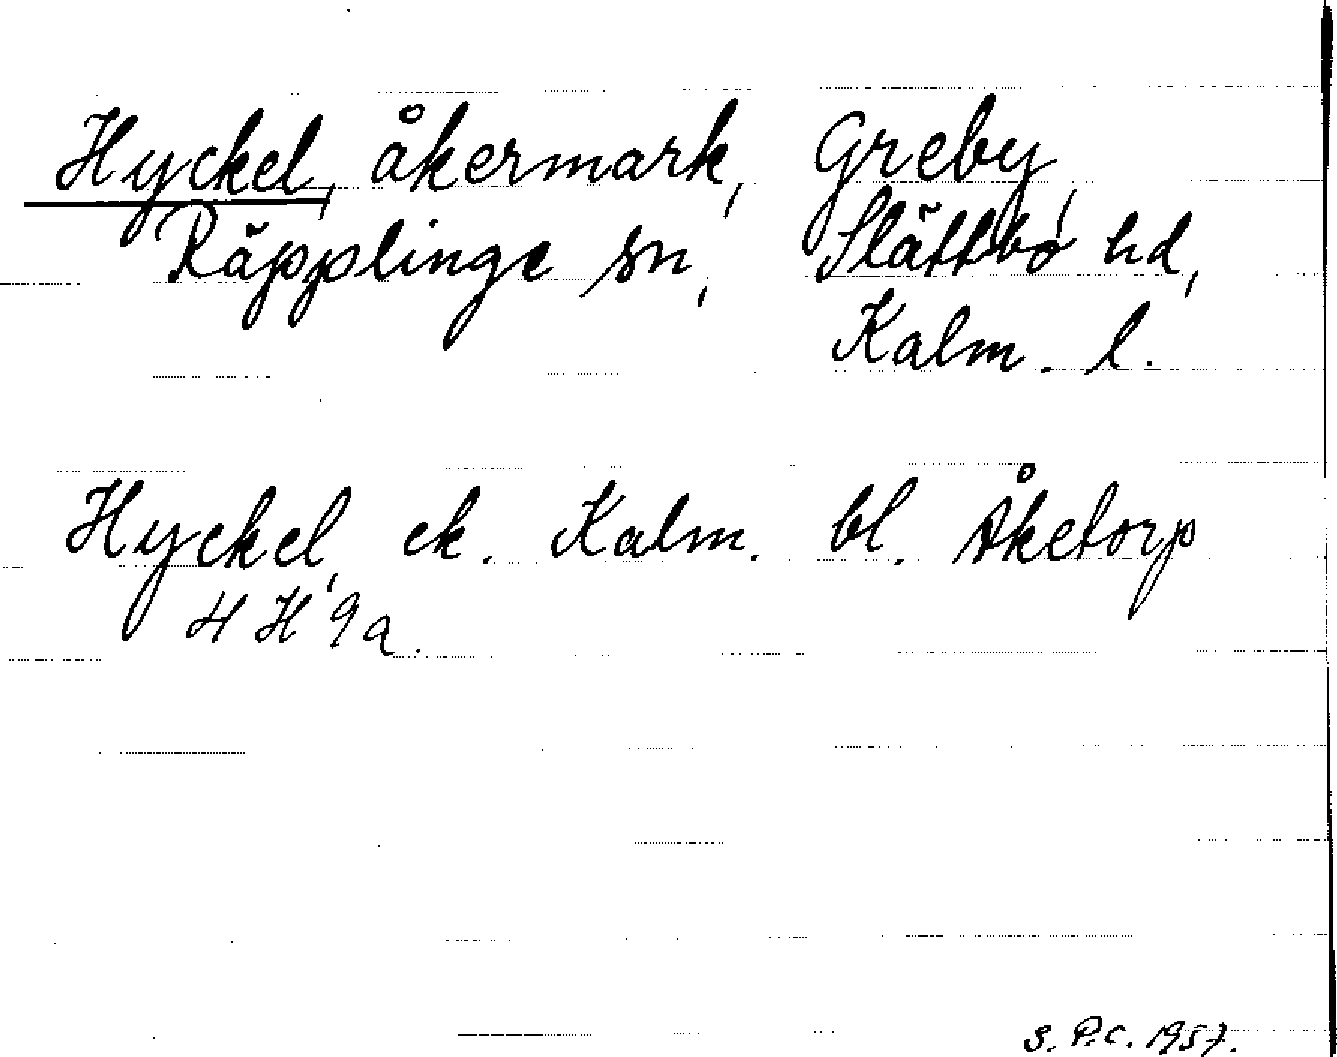 Hyckel, åkermark, Greby,
Räpplinge sn, Slättbo hd,
Kalm. l.
Hyckel, ek. Kalm. bl. Åketorp
4 H 9a.
S. P.C. 1957.